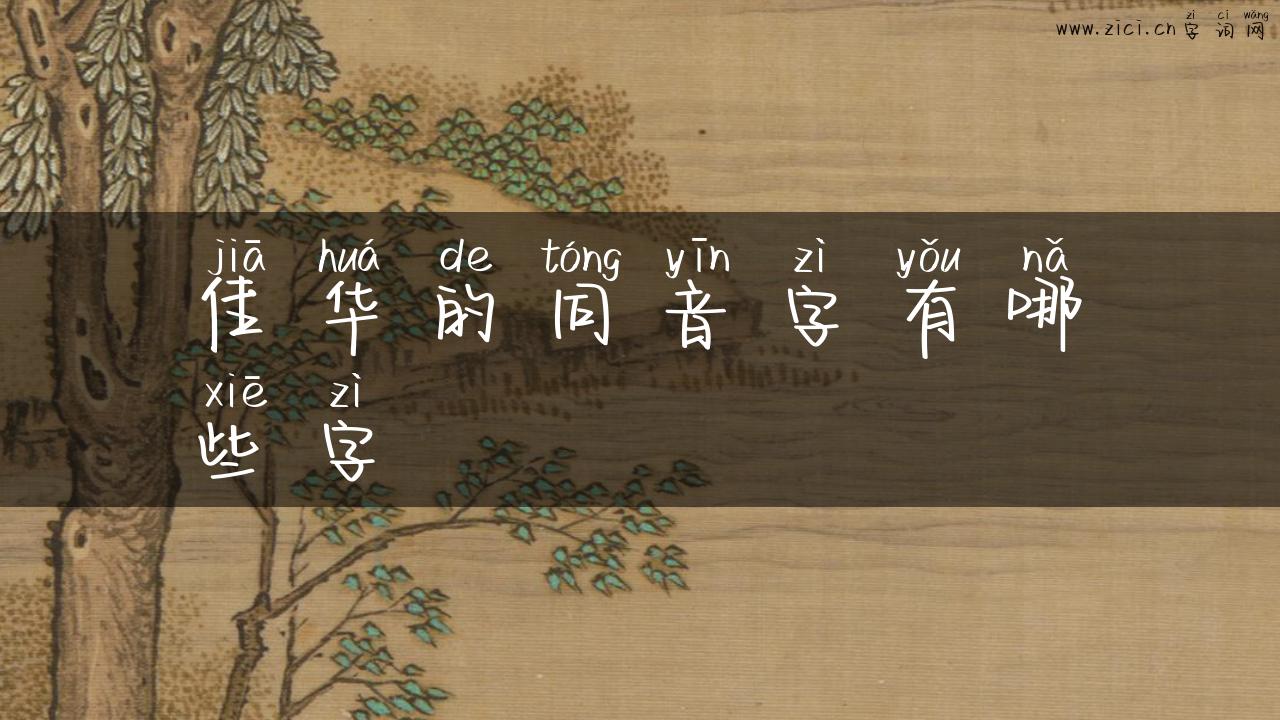 zì cí wǎng
www.zici.cn 字词网
jiā huá de tóng yīn zì yǒu nǎ
佳华的同音字有哪
xiē zì
些字